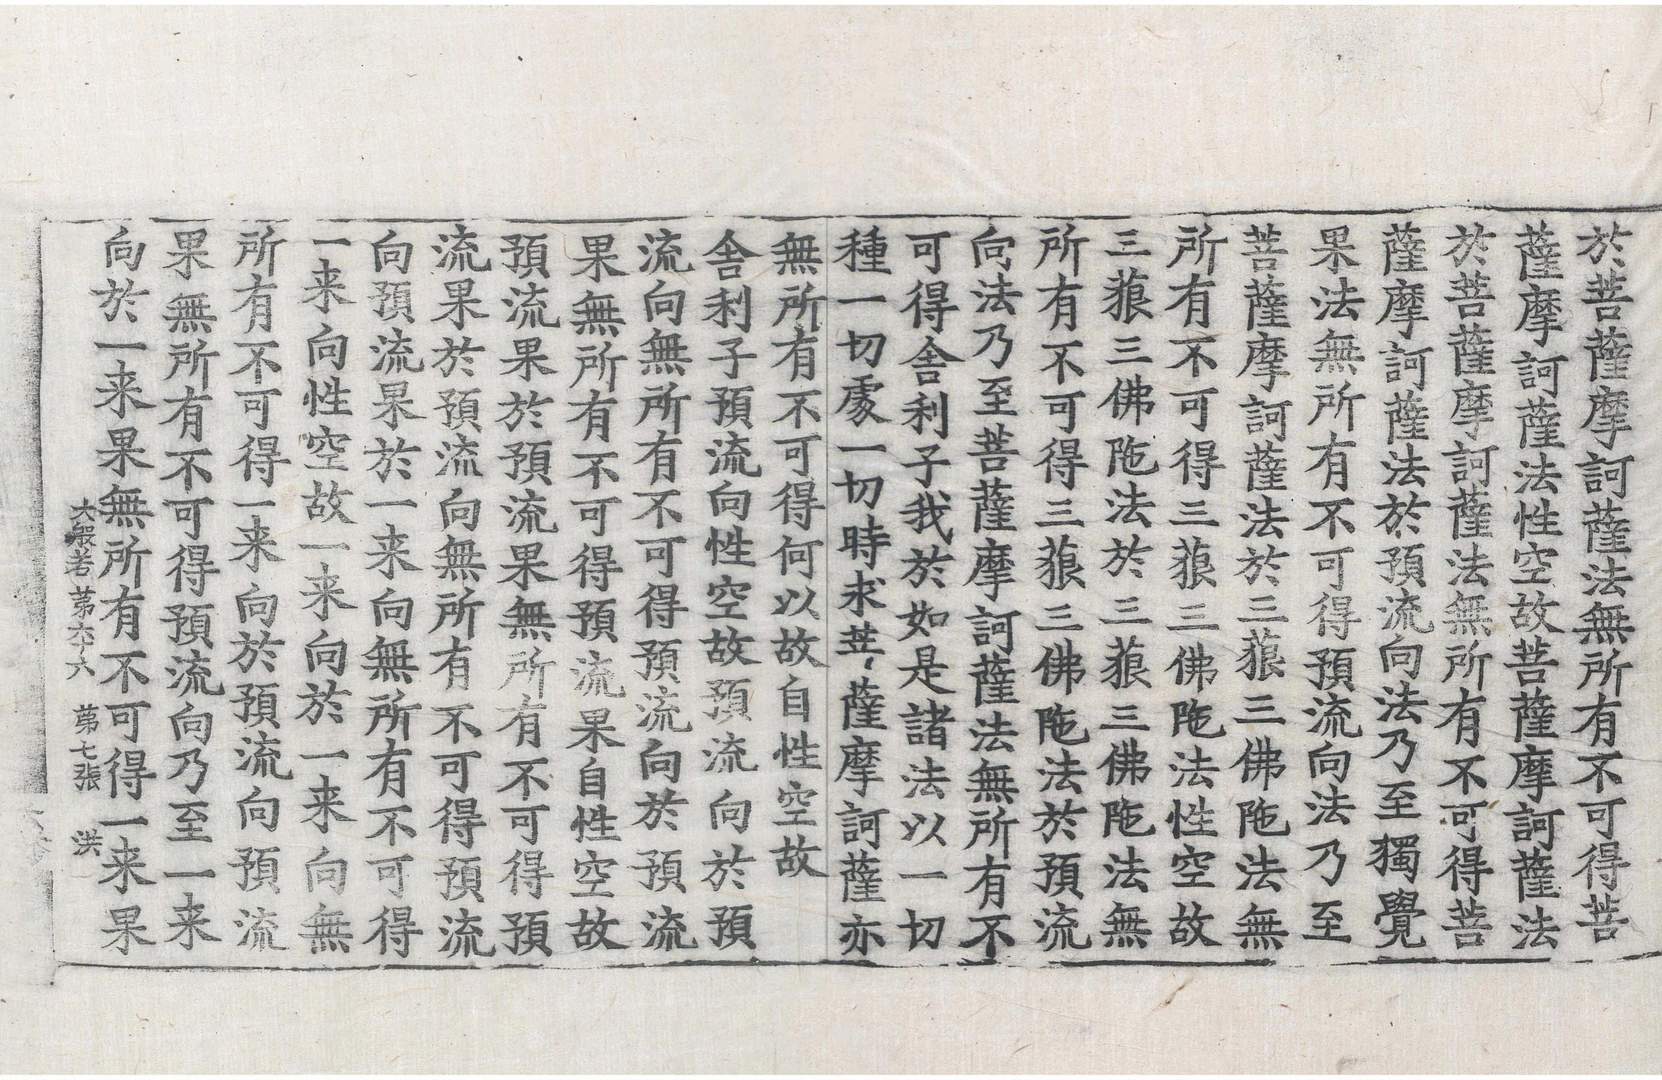 於菩薩摩訶薩法無所有不可得菩
薩摩訶薩法性空故菩薩摩訶薩法
於菩薩摩訶薩法無所有不可得菩
薩摩訶薩法於預流向法乃至獨覺
果法無所有不可得預流向法乃至
菩薩摩訶薩法於三藐三佛陁法無
所有不可得三藐三佛陁法性空故
三藐三佛陁法於三藐三佛陁法無
所有不可得三藐三佛陁法於預流
向法乃至菩薩摩訶薩法無所有不
可得舍利子我於如是諸法以一切
種一切處一切時求菩薩摩訶薩亦
無所有不可得何以故自性空故
舍利子預流向性空故預流向於預
流向無所有不可得預流向於預流
果無所有不可得預流果自性空故
預流果於預流果無所有不可得預
流果於預流向無所有不可得預流
向預流果於一来向無所有不可得
一来向性空故一来向於一来向無
所有不可得一来向於預流向預流
果無所有不可得預流向乃至一来
向於一来果無所有不可得一来果
大般若第六十六 第七張 洪